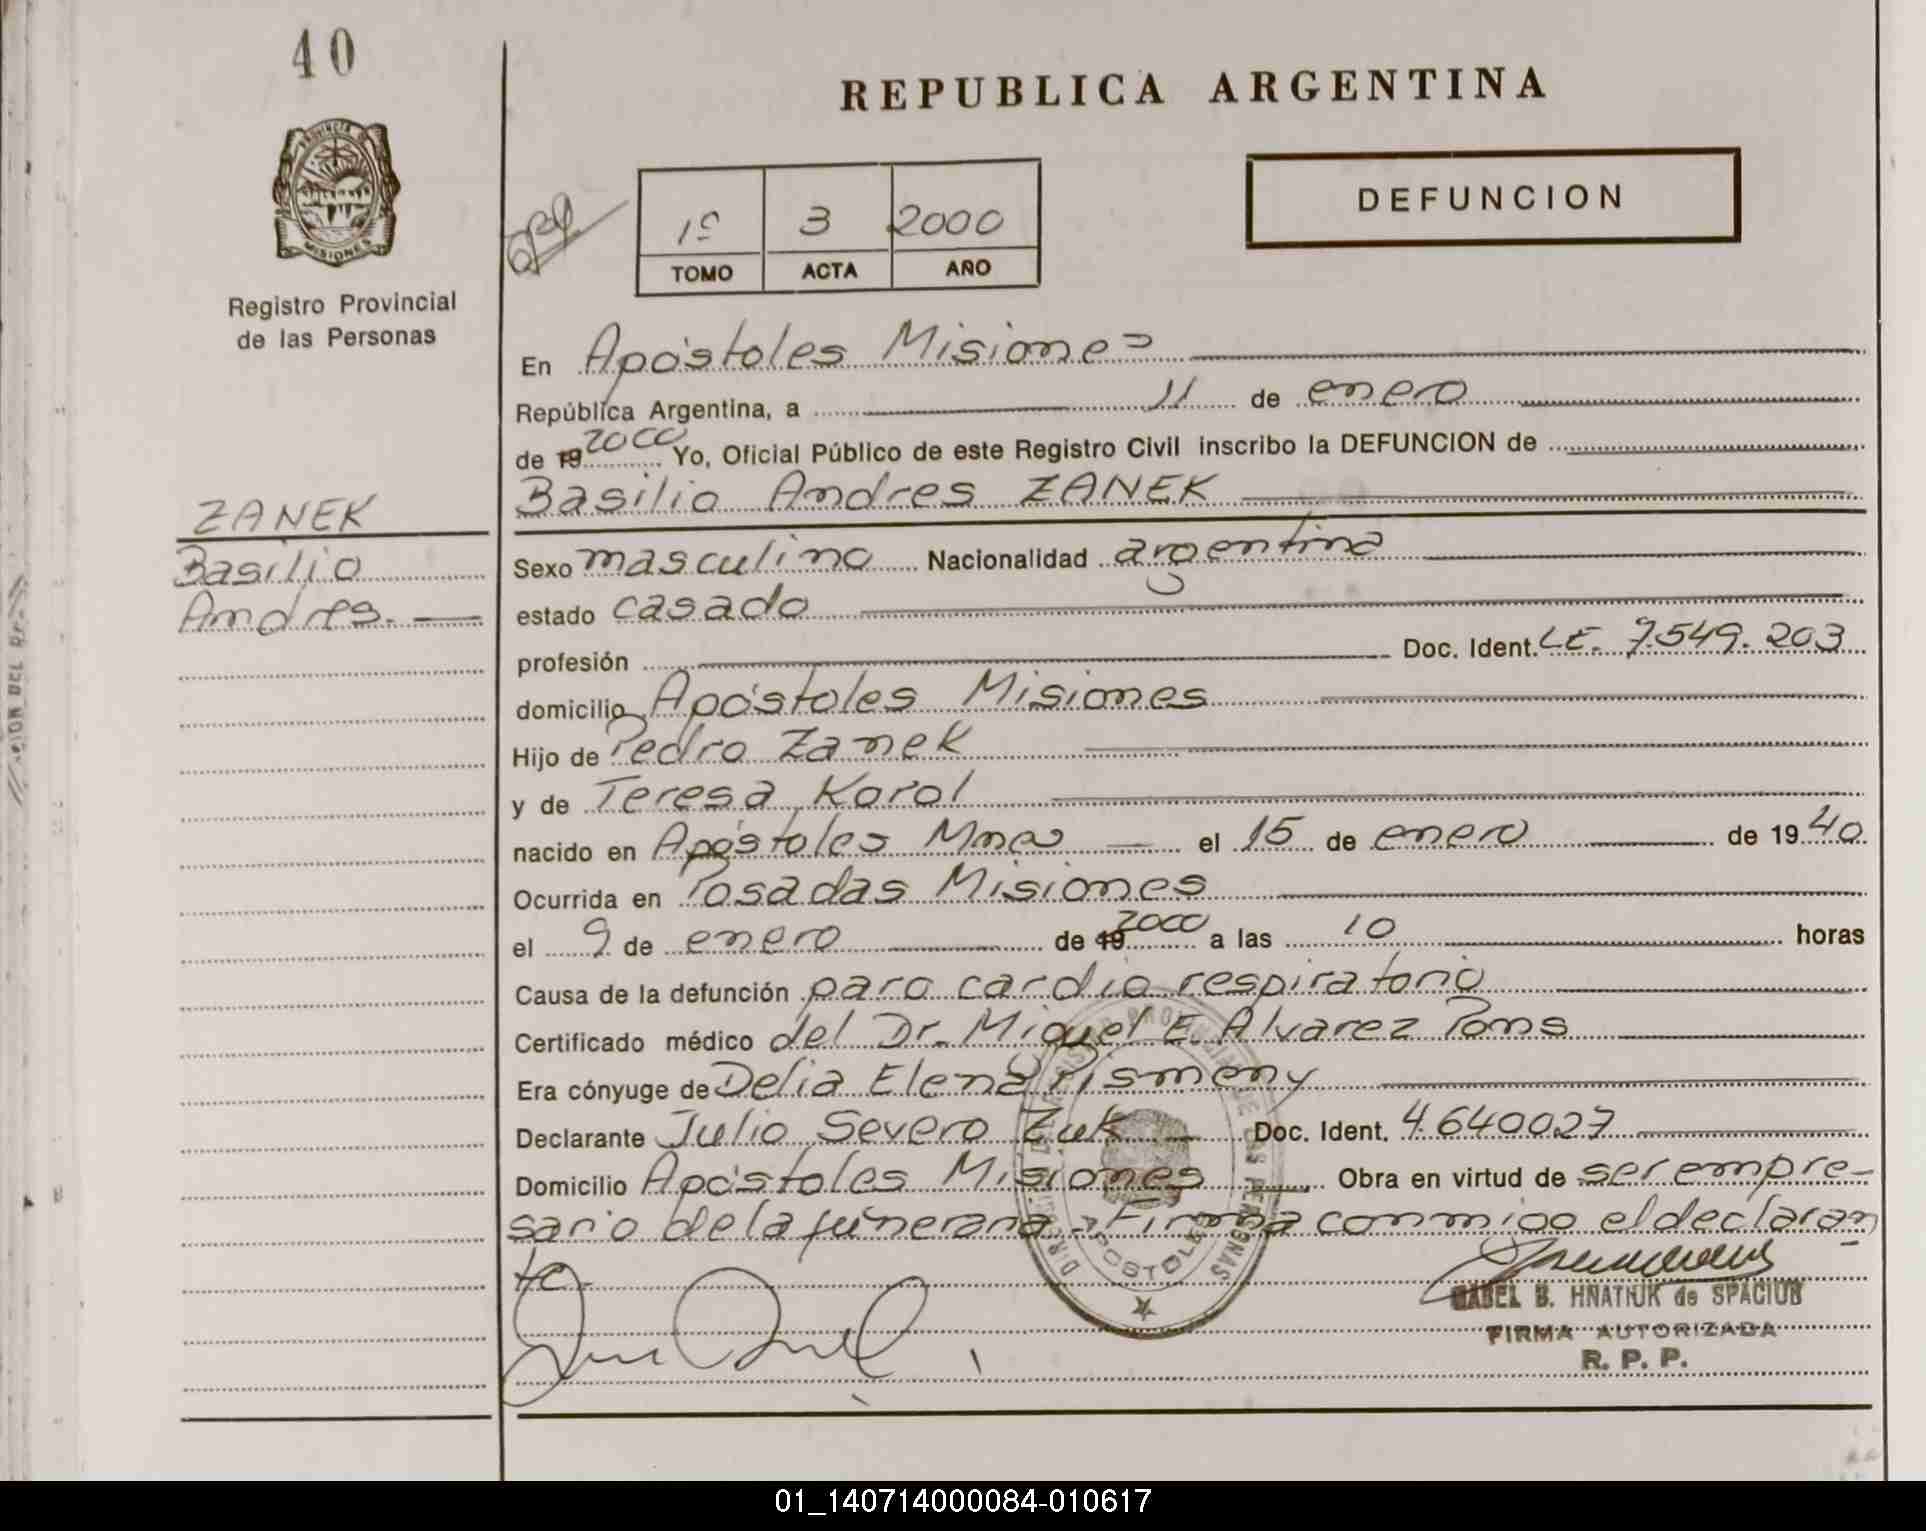 40
REPUBLICA ARGENTINA
PROVINCIA DE
MISIONES
Registro Provincial
de las Personas
1º 3 2000
TOMO ACTA AÑO
DEFUNCION
En Apóstoles Misiones
República Argentina, a 11 de enero
de 19 2000 Yo, Oficial Público de este Registro Civil inscribo la DEFUNCION de
Basilio Andres ZANEK
ZANEK
Basilio
Andres.
Sexo masculino Nacionalidad argentina
estado casado
profesión Doc. Ident. LE. 7.549.203
domicilio Apóstoles Misiones
Hijo de Pedro Zanek
y de Teresa Korol
nacido en Apóstoles Mnes el 15 de enero de 1940
Ocurrida en Posadas Misiones
el 9 de enero de 19 2000 a las 10 horas
Causa de la defunción paro cardio respiratorio
Certificado médico del Dr. Miguel E Alvarez Pons
Era cónyuge de Delia Elena Pismeny
Declarante Julio Severo Zuk Doc. Ident. 4.640027
Domicilio Apóstoles Misiones Obra en virtud de ser empre-
sario de la funeraria - Firma conmigo el declaran
te.
ISABEL B. HÑATIUK de SPACIUK
FIRMA AUTORIZADA
R. P. P.
01_140714000084-010617